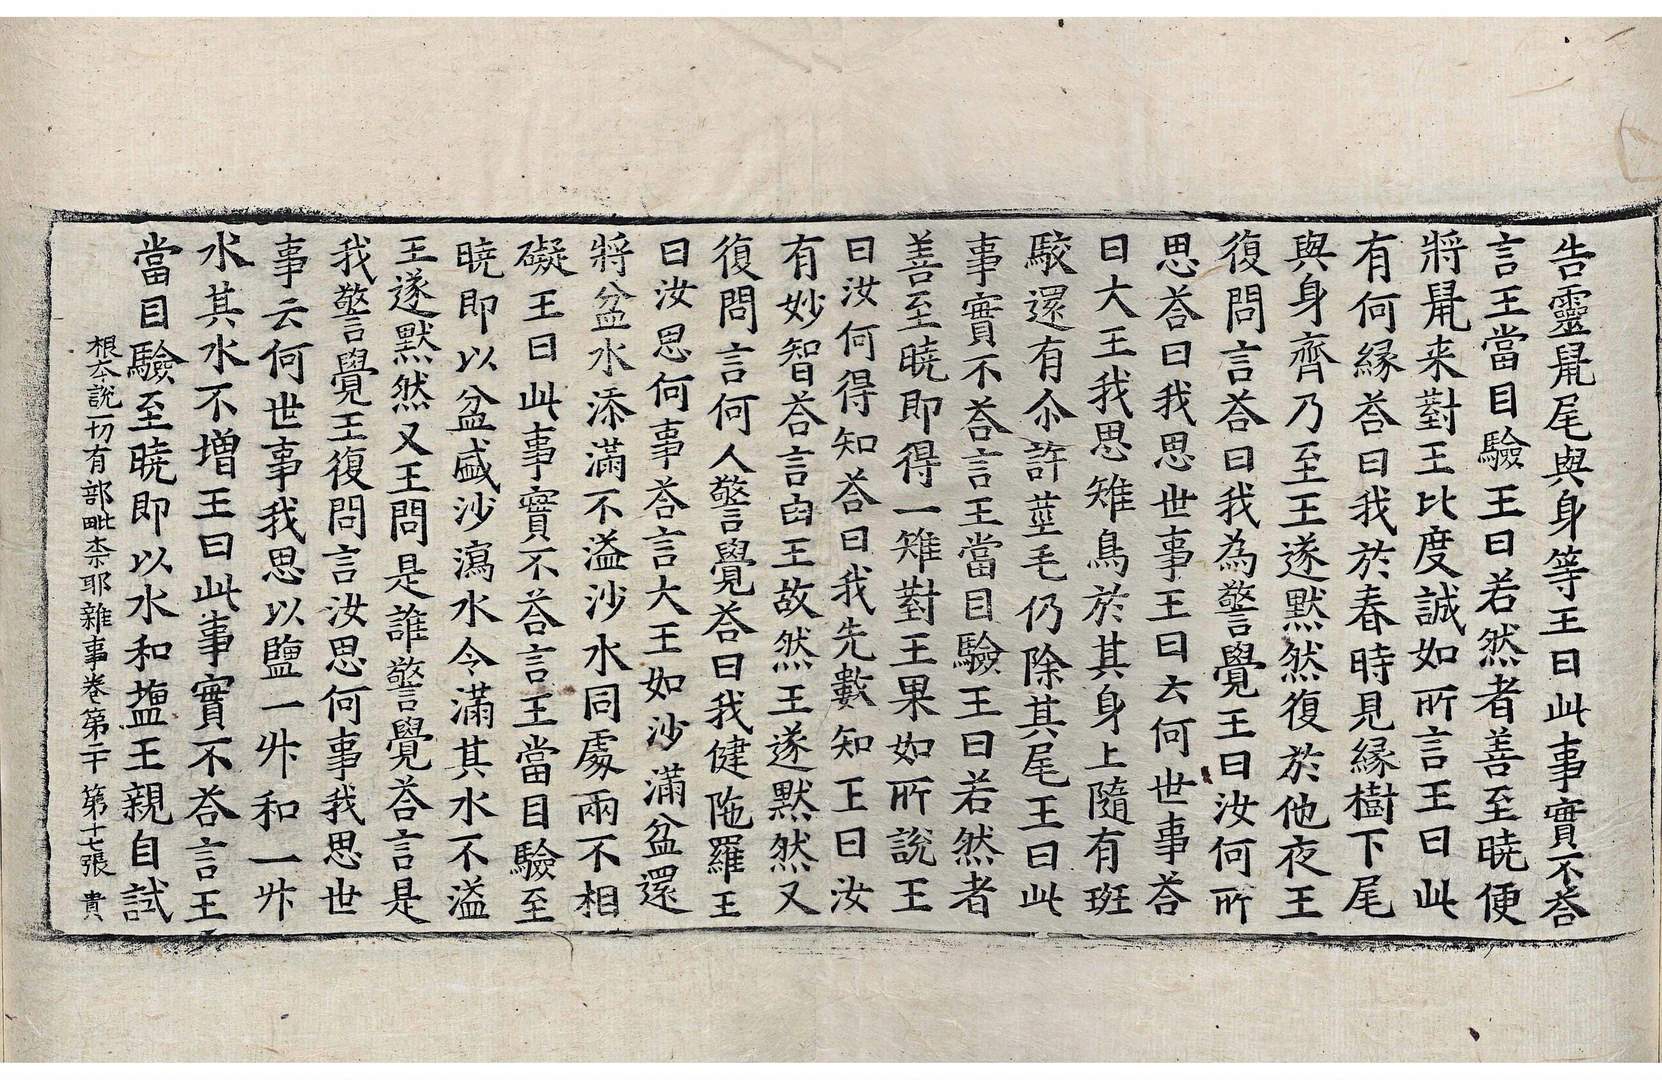 告靈鼠尾與身等王曰此事實不荅
言王當目驗王曰若然者善至曉便
將鼠来對王比度誠如所言王曰此
有何緣荅曰我於春時見緣樹下尾
與身齊乃至王遂默然復於他夜王
復問言荅曰我為警覺王曰汝何所
思荅曰我思世事王曰云何世事荅
曰大王我思雉鳥於其身上隨有斑
駮還有尒許莖毛仍除其尾王曰此
事實不荅言王當目驗王曰若然者
善至曉即得一雉對王果如所說王
曰汝何得知荅曰我先數知王曰汝
有妙智荅言由王故然王遂默然又
復問言何人警覺荅曰我健陁羅王
曰汝思何事荅言大王如沙滿盆還
將盆水添滿不溢沙水同處兩不相
礙王曰此事實不荅言王當目驗至
曉即以盆盛沙瀉水令滿其水不溢
王遂默然又王問是誰警覺荅言是
我警覺王復問言汝思何事我思世
事云何世事我思以鹽一升和一升
水其水不增王曰此事實不荅言王
當目驗至曉即以水和塩王親自試
根本說一切有部毗柰耶雜事卷第二十 第十七張 貴